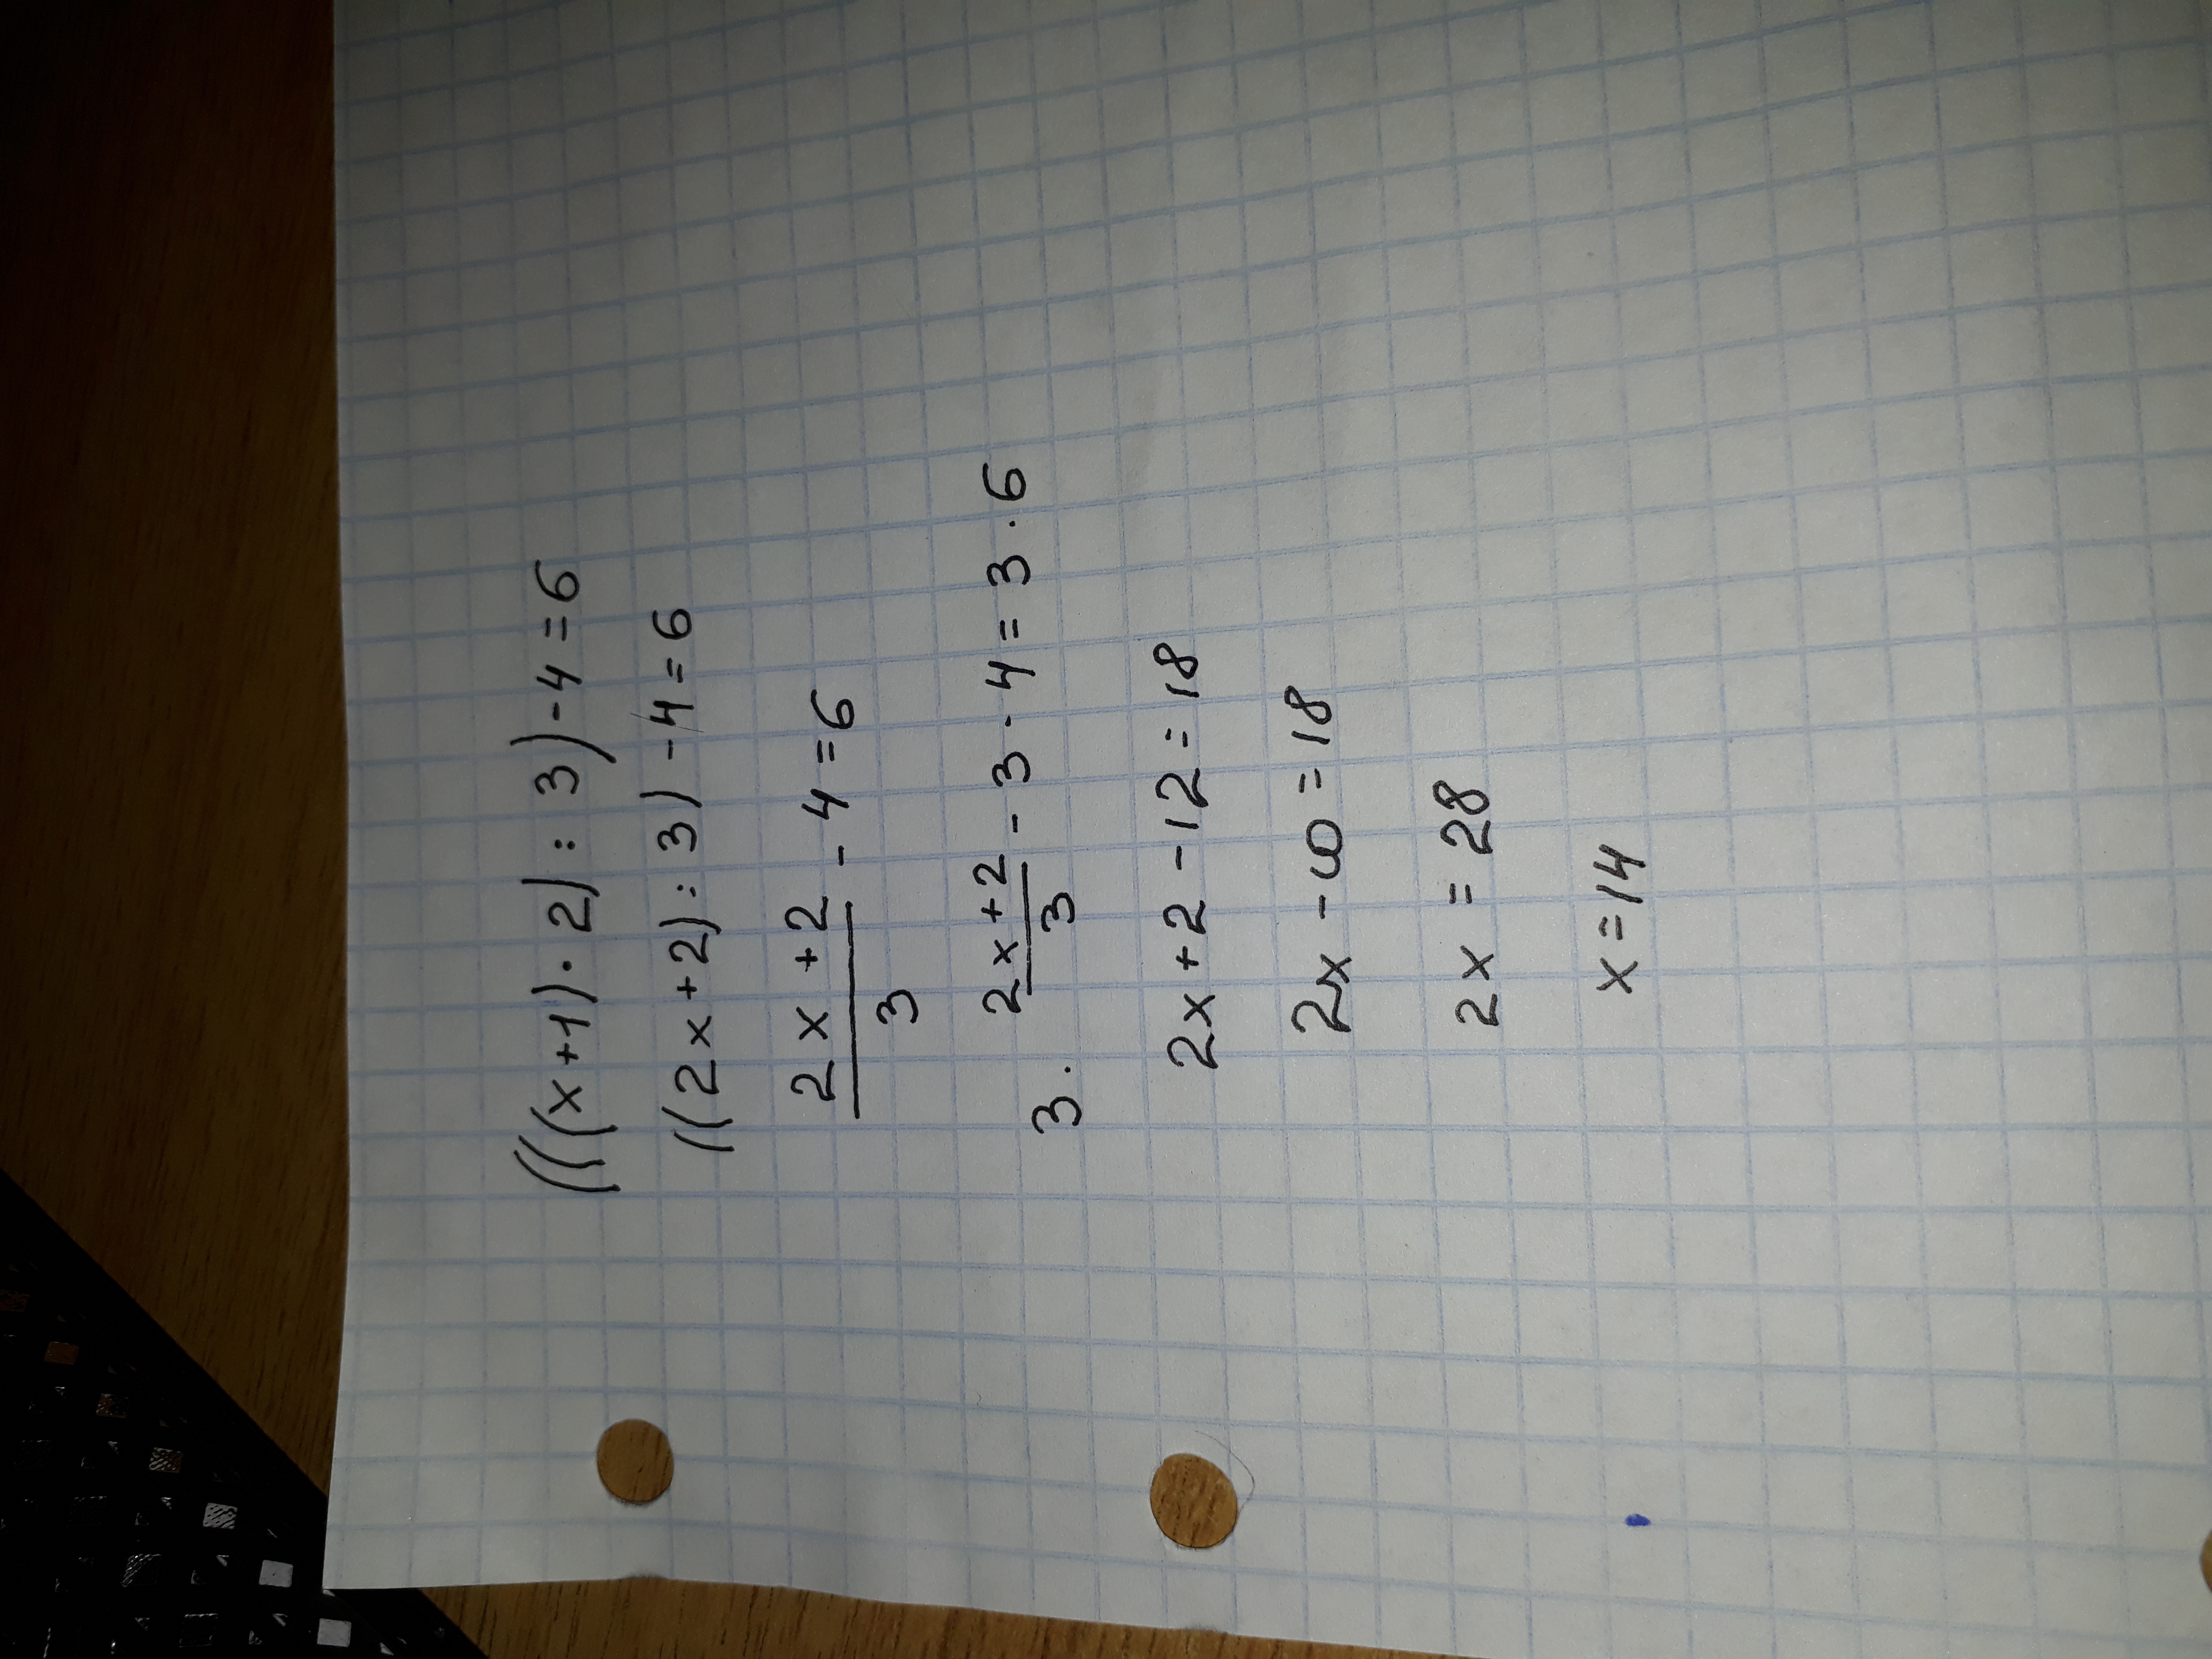 (((x+1)·2):3)-4=6
((2x+2):3)-4=6
2x+2/3 - 4=6
3· 2x+2/3 - 3·4=3·6
2x+2-12=18
2x-10=18
2x=28
x=14